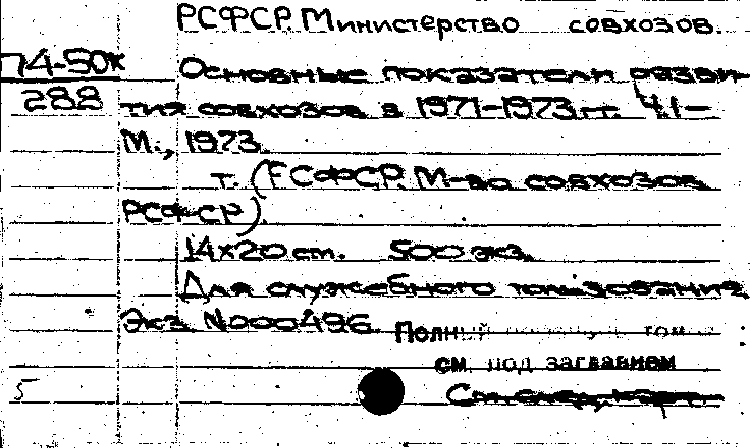 РСФСР. Министерство совхозов.
П4-50к
Основные показатели разви-
288
тия совхозов в 1971-1973 гг. Ч.1-
М., 1973.
т. (РСФСР. М-во совхозов
РСФСР).
14х20 см. 500 экз.
Для служебного пользования
Экз. №000496
Полный том
см. под заглавием
См. след. карт.
5